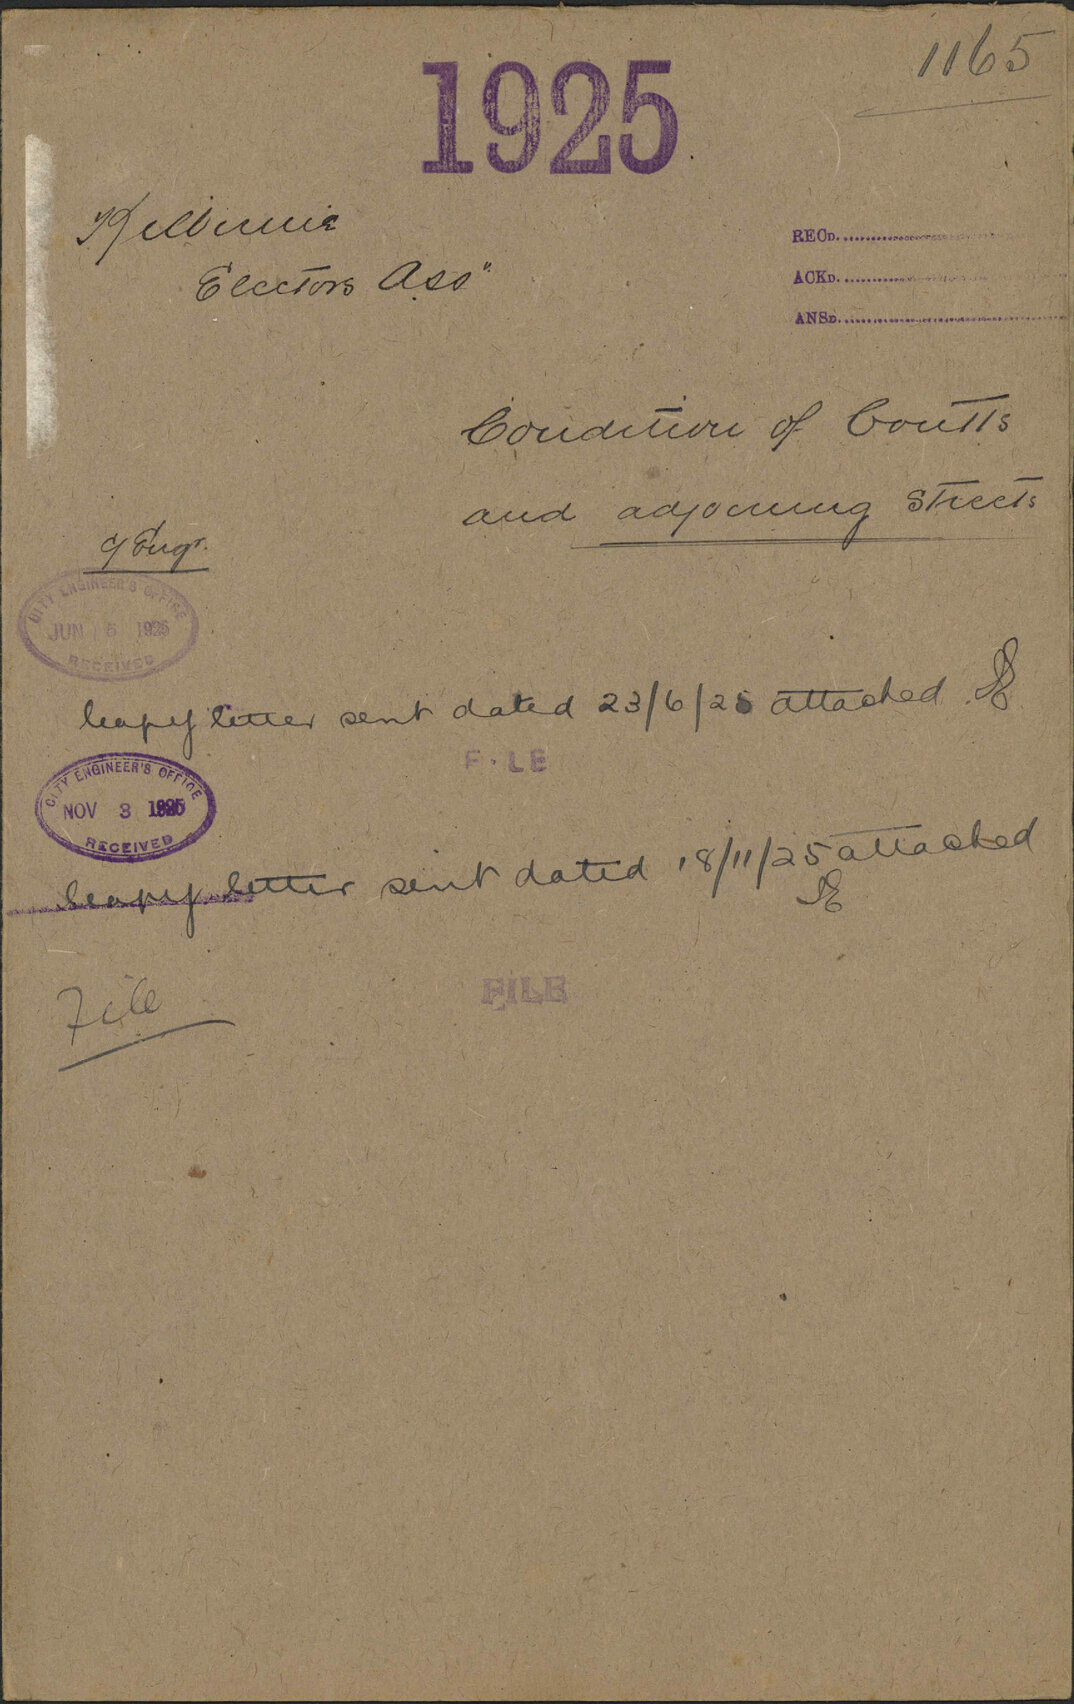 1165
1925
Kilbirnie
Electors Ass"
RECD.
ACKD.
ANSD.
Condition of Coutts
and adjoining Streets
C/Engr.
CITY ENGINEER'S OFFICE
JUN 5 1925
RECEIVED
Copy letter sent dated 23/6/25 attached.
FILE
CITY ENGINEER'S OFFICE
NOV 3 1925
RECEIVED
Copy letter sent dated 18/11/25 attached
File
FILE